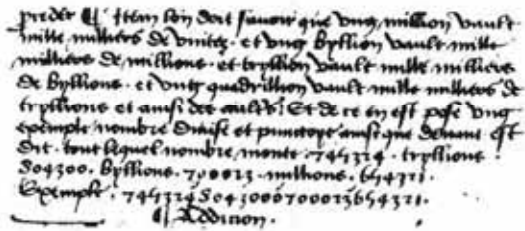 preder ¶ Item lon doit savoir que ung million vault
mille milliers de unitez . et ung byllion vault mille
milliers de millions . et tryllion vault mille milliers
de byllions . et ung quadrillion vault mille milliers de
tryllions et ainsi des aultres / Et de ce en est pose ung
exemple nombre divise et punctoye ainsi que devant est
dit . tout lequel nombre monte . 745324 . tryllions .
804300 . byllions . 700023 . millions . 654321 .
Exemple . 7453248043000700023654321 .
¶ Addicion .